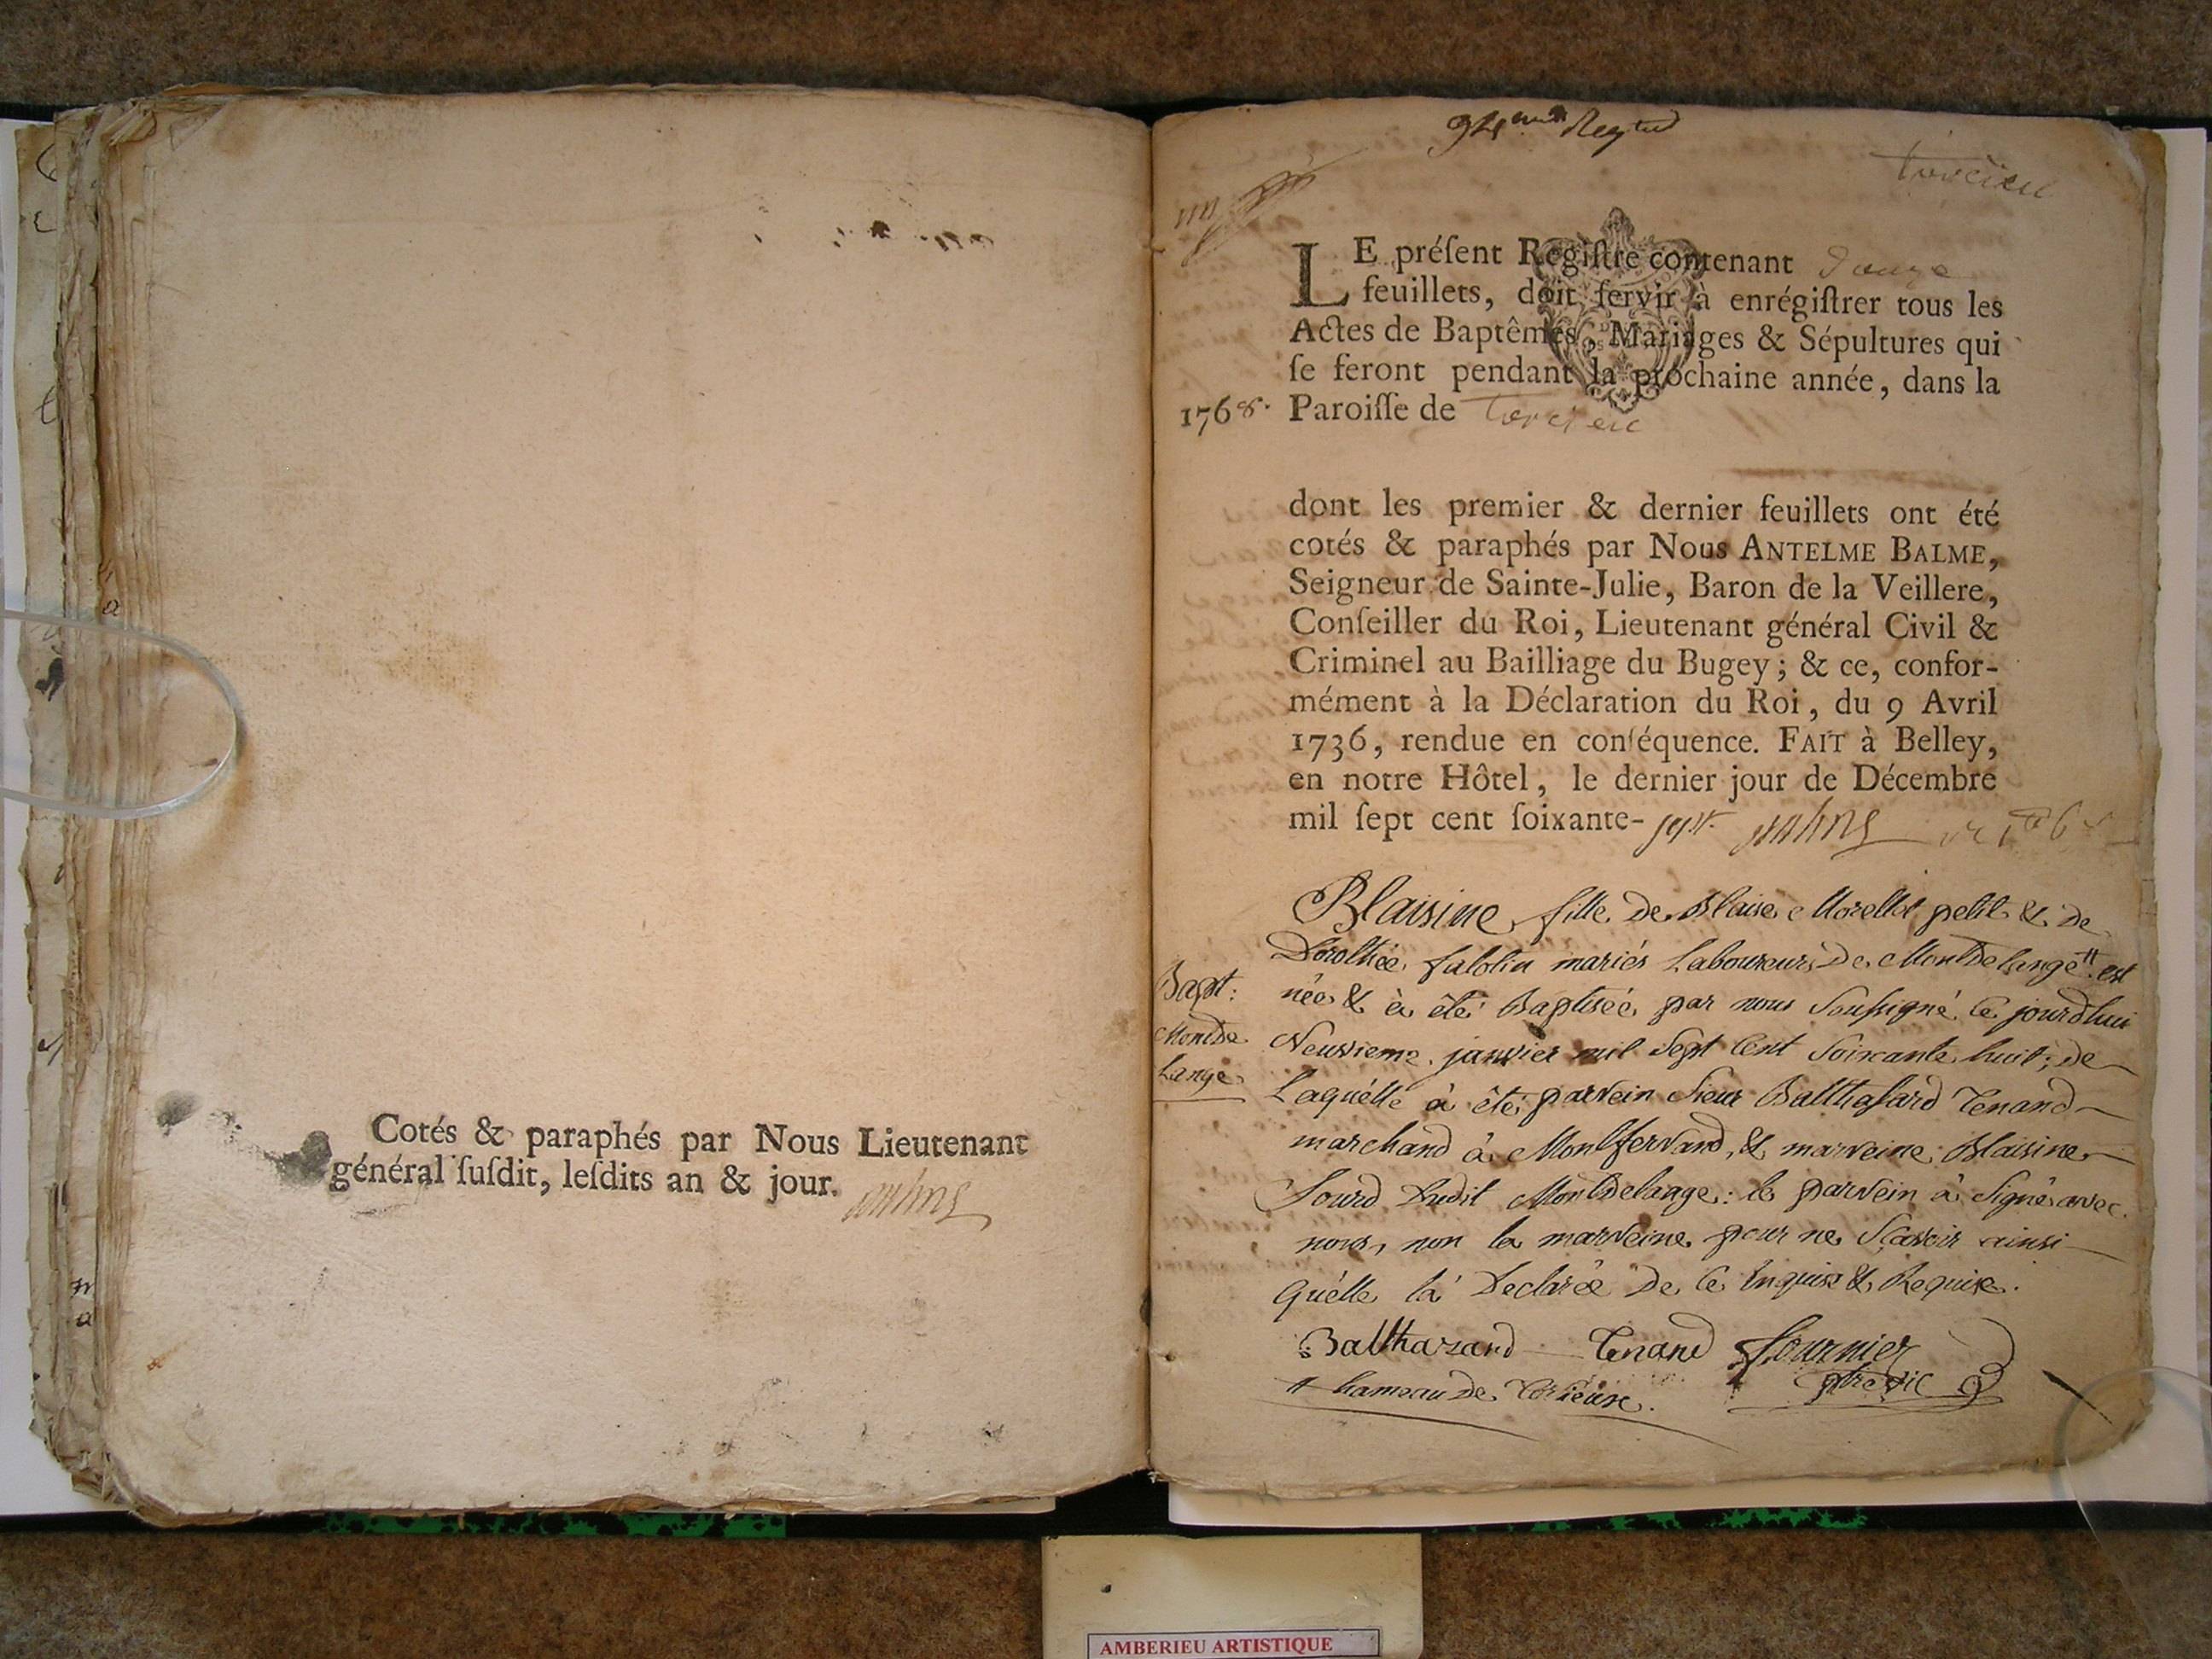 Cotés & paraphés par Nous Lieutenant
général ſuſdit, leſdits an & jour.
94
torcieu
LE préſent Regiſtre contenant douze
feuillets, doit ſervir à enrégiſtrer tous les
Actes de Baptêmes, Mariages & Sépultures qui
ſe feront pendant la prochaine année, dans la
1768. Paroiſſe de torcieu
dont les premier & dernier feuillets ont été
cotés & paraphés par Nous ANTELME BALME,
Seigneur de Sainte-Julie, Baron de la Veillere,
Conſeiller du Roi, Lieutenant général Civil &
Criminel au Bailliage du Bugey; & ce, confor-
mément à la Déclaration du Roi, du 9 Avril
1736, rendue en conſéquence. FAIT à Belley,
en notre Hôtel, le dernier jour de Décembre
mil ſept cent ſoixante-sept
Blaisine fille De Blaise Morellet petit & De
Dorothée falolin mariés Laboureurs De Montdelange # est
Bapt:
Montde
Lange
née & à été Baptisée par nous Soussigné Ce jourdhui
Neuvieme janvier mil Sept Cent Soixante huit; de
Laquélle à été parrein Sieur Balthasard Tenand
marchand à Montferrand, & marreine Blaisine
Sourd Dudit Montdelange: le parrein à Signé avec
nous, non la marreine pour ne Sçavoir ainsi
Qu'elle là Declarée De Ce Enquise & Requise.
Balthazard Tenand fournier
ptre vic
# hameau De Torcieux.
AMBERIEU ARTISTIQUE